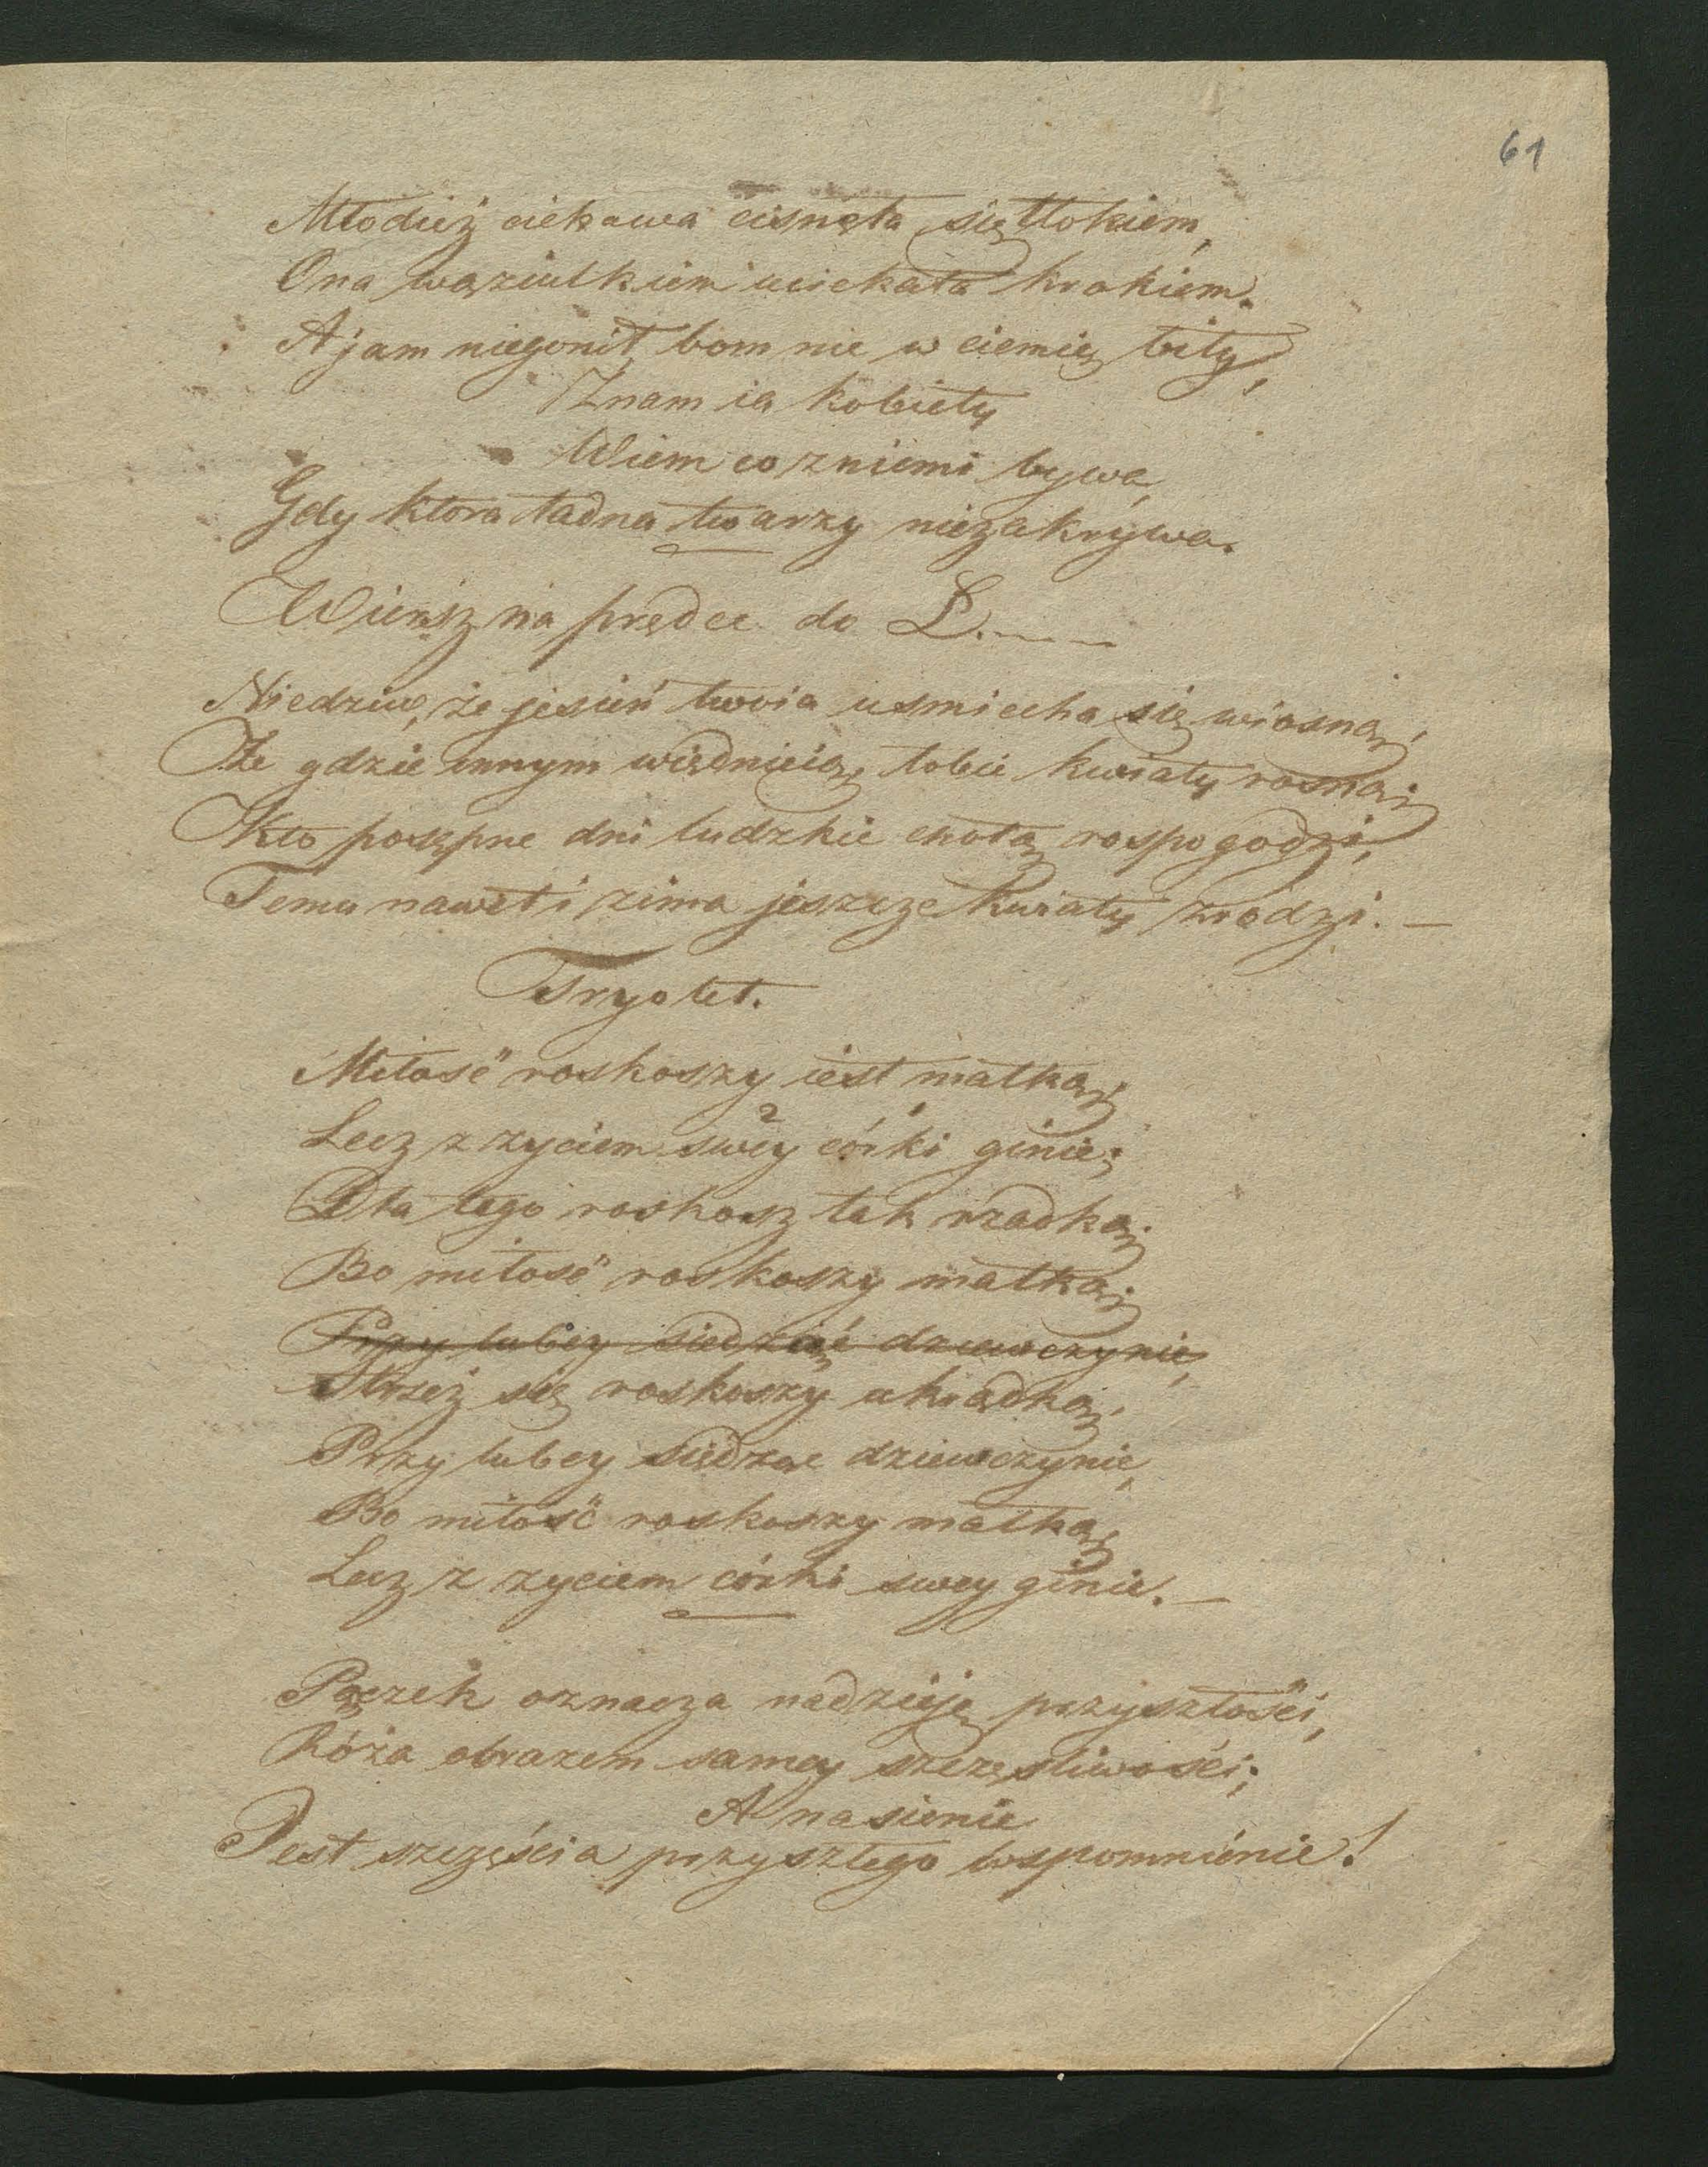 61
Młodież ciekawa cisnęła się tłokiem,
Ona wąziutkiem uciekała krokiem.
A jam niegonił, bom nie w ciemię bity,
Znam ia kobiety
Wiem co zniemi bywa,
Gdy ktora ładna twarzy niezakrywa.
Wiersz na prędce do L.----
Niedziw, że jesień twoia usmiecha się wiosną,
Że gdzie innym więdnieią, tobie kwiaty rosną;
Kto posępne dni ludzkie cnotą rospogodzi,
Temu nawet i zima jeszcze kwiaty zrodzi. —
Tryolet.
Miłość roskoszy iest matką;
Lecz z zyciem swéy córki ginie;
Dla tego roskosz tak rzadką;
Bo miłość roskoszy matką;
Przy lubey siedząć dziewczynie,
Strzeż się roskoszy ukradką,
Przy lubey siedząc dziewczynie,
Bo miłość roskoszy matką,
Lecz z zyciem córki swey ginie. —
Pączek oznacza nadzieję przyszłości,
Róża obrazem samey szczęsliwości;
A nasienie
Jest szczęścia przyszłego wspomnienie!